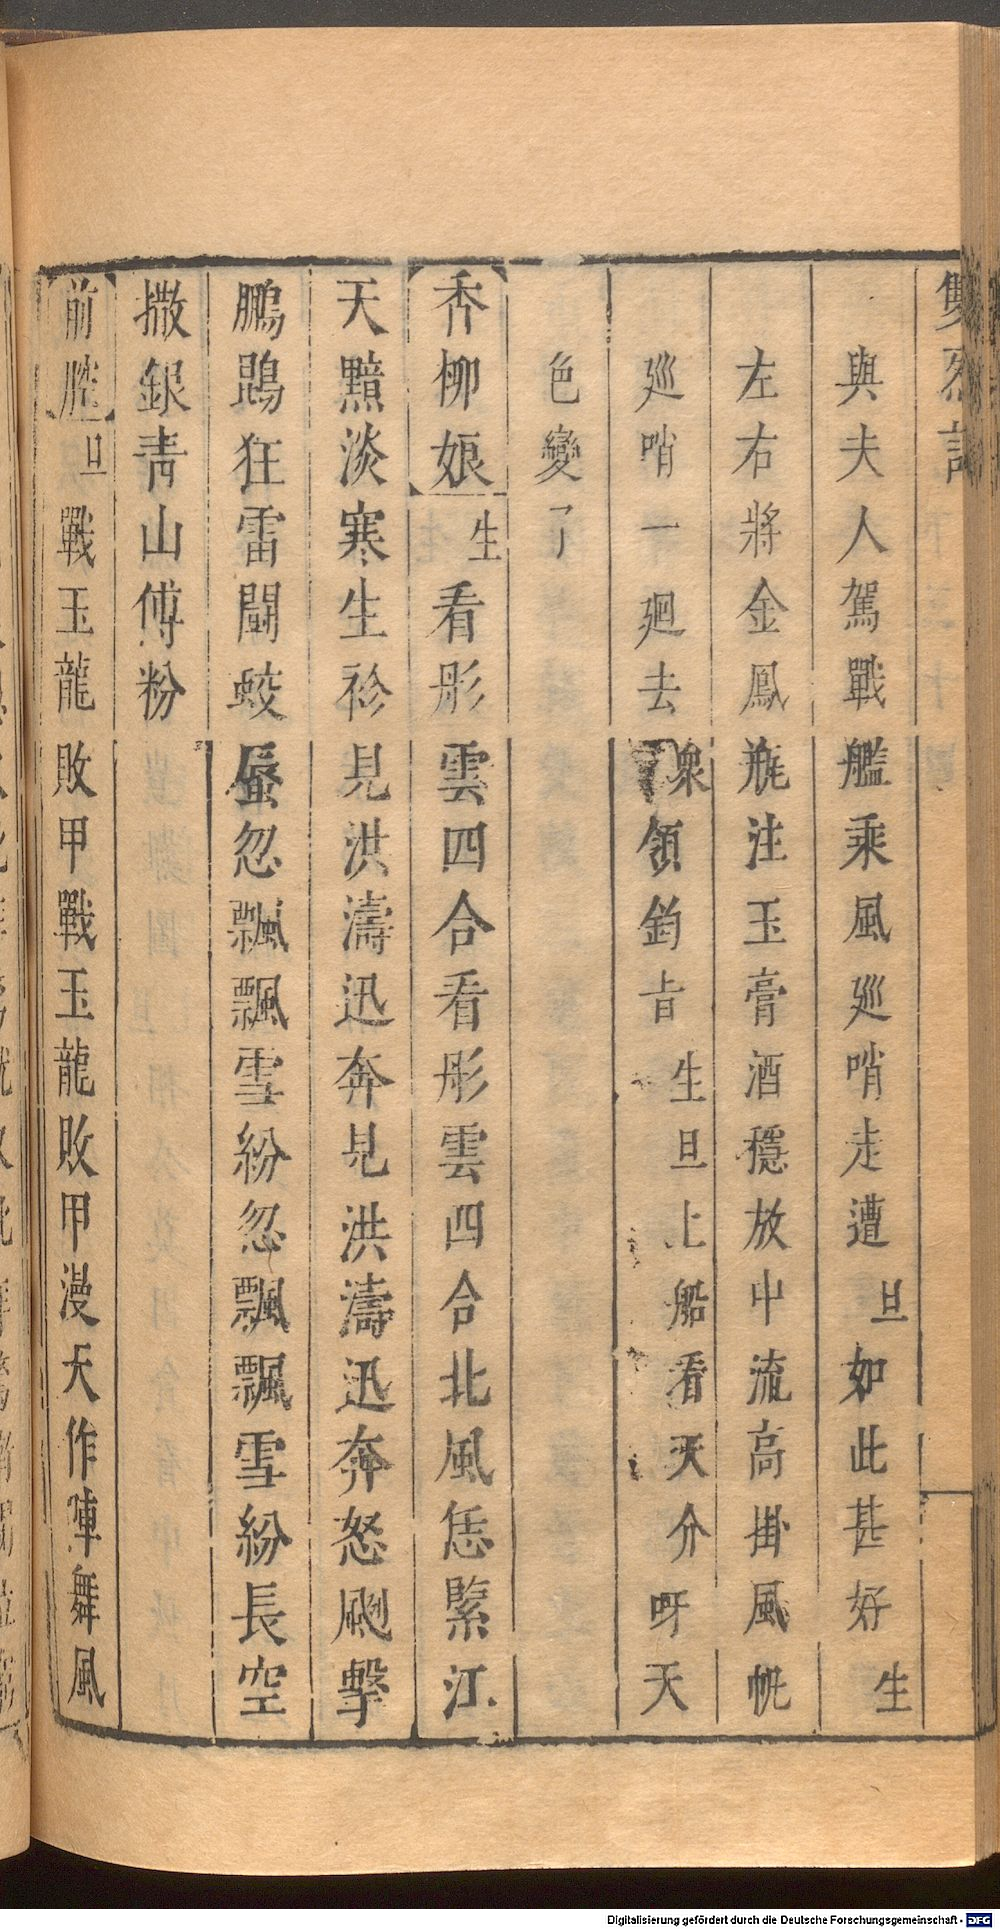 雙烈記
與夫人駕戰艦乘風巡哨走遭旦如此甚好生
左右將金鳳瓶注玉膏酒穩放中流高掛風帆
巡哨一廻去衆領鈞旨生旦上船看天介呀天
色變了
香柳娘生看彤雲四合看彤雲四合北風恁緊江
天黯淡寒生袗見洪濤迅奔見洪濤迅奔怒颷擊
鵬鵾狂雷鬪蛟蜃忽飄飄雪紛忽飄飄雪紛長空
撒銀青山傅粉
前腔旦戰玉龍敗甲戰玉龍敗甲漫天作陣舞風
Digitalisierung gefördert durch die Deutsche Forschungsgemeinschaft - DFG